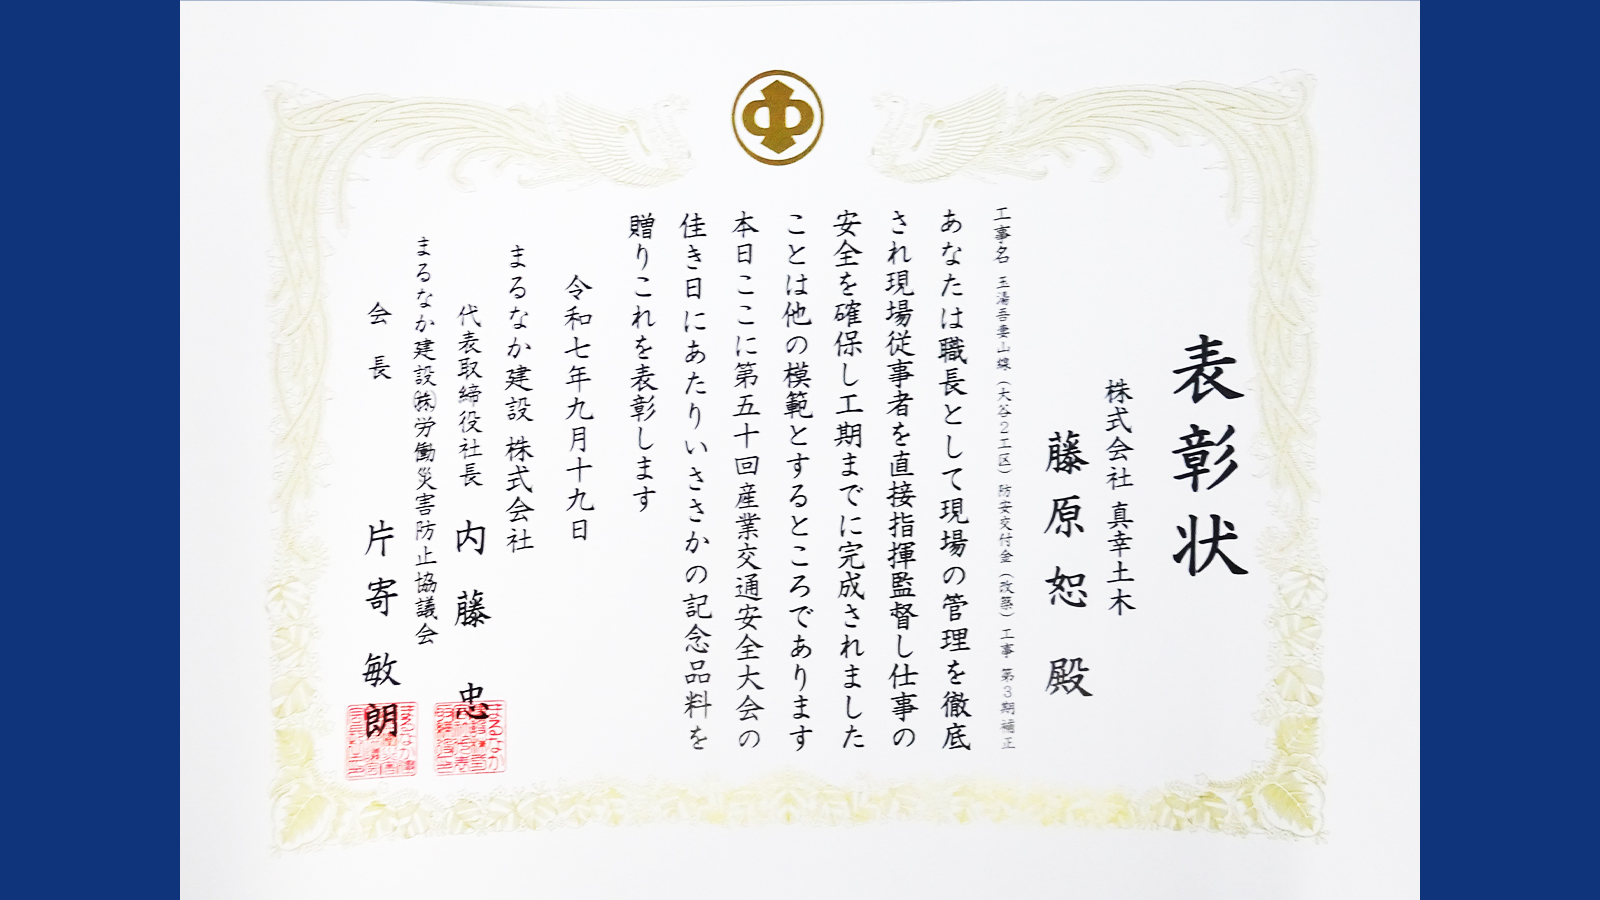 表彰状
株式会社 真幸土木
藤原恕 殿
工事名 玉湯吾妻山線(大谷2工区)防安交付金(改築)工事 第3期補正
あなたは職長として現場の管理を徹底
され現場従事者を直接指揮監督し仕事の
安全を確保し工期までに完成されました
ことは他の模範とするところであります
本日ここに第五十回産業交通安全大会の
佳き日にあたりいささかの記念品料を
贈りこれを表彰します
令和七年九月十九日
まるなか建設株式会社
代表取締役社長 内藤 忠
まるなか建設㈱労働災害防止協議会
会長 片寄敏朗